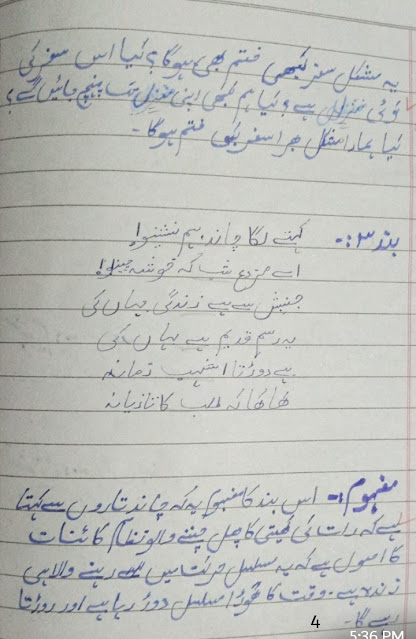 یہ مشکل سفر کبھی ختم بھی ہوگا؟ کیا اس سفر کی
کوئی منزل ہے؟ کیا ہم کبھی اپنی منزل تک پہنچ جائیں گے؟
کیا ہمارا مشکل بھرا سفر کبھی ختم ہوگا۔
بند ۳:-
کہنے لگا چاند ہم نشینو!
اے مزرع شب کے خوشہ چینو!
جنبش سے ہے زندگی جہاں کی
یہ رسم قدیم ہے یہاں کی
ہے دوڑتا اشہب زمانہ
کھا کھا کے طلب کا تازیانہ
مفہوم:- اس بند کا مفہوم یہ کہ چاند تاروں سے کہتا
ہے کہ رات کی کھیتی کا چل چننے والو نظام کائنات
کا اصول ہے کہ یہ مسلسل حرکت میں رہنے والا ہی
زندہ ہے۔ وقت کا گھوڑا مسلسل دوڑ رہا ہے اور دوڑتا
رہے گا۔
4
5:36 PM